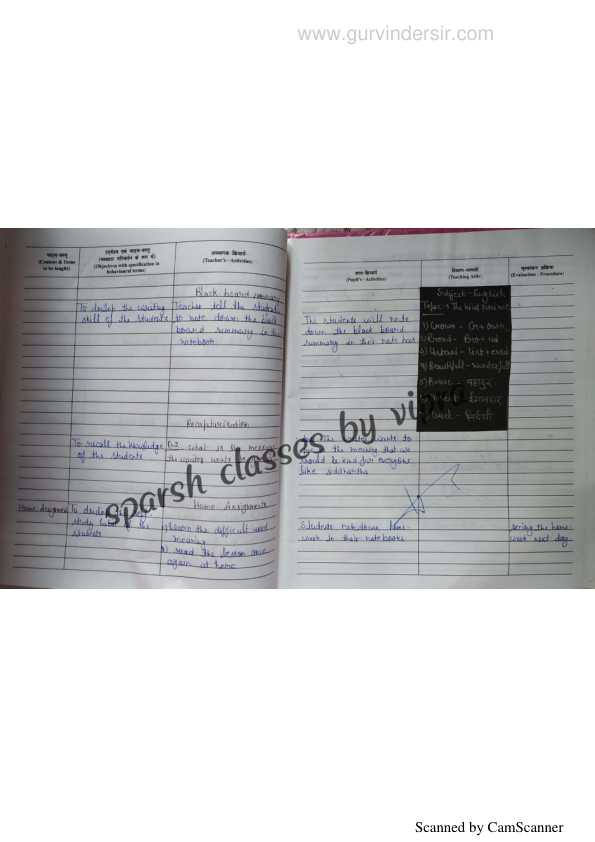 www.gurvindersir.com
पाठ्य-वस्तु
(Content & Items
to be taught)
उद्देश्य एवं पाठ्य-वस्तु
(व्यवहार परिवर्तन के रूप में)
(Objectives with specification in
behavioural terms)
अध्यापक क्रियायें
(Teacher's - Activities)
Black board summary
To devlop the writing
skill of the students
Teacher tell the student
to note down the black
board summary in their
notebook
Recapturisation
To recall the knowledge
of the students
Q.2 what is the
the
Home Assignment
To devlop the
study habit of the
students
Home Assignments
Learn the difficult word
meaning
read the lesson once
again at home
छात्र-क्रियायें
(Pupil's - Activities)
शिक्षण-सामग्री
(Teaching Aids)
मूल्यांकन प्रक्रिया
(Evaluation - Procedure)
The students will note
down the black board
summary in their note book
Subject - English
Topic → The kind
1) Grown - Gr+own
2) Proud - Pro+ud
4) Beautifull - Wonderfull
5) Brave - बहादुर
ईमानदार
wants to
the meaning that we
should be kind for everyone
like siddhartha
Students notedown home-
work in their notebooks
the home
work next day
sparsh classes by
Scanned by CamScanner